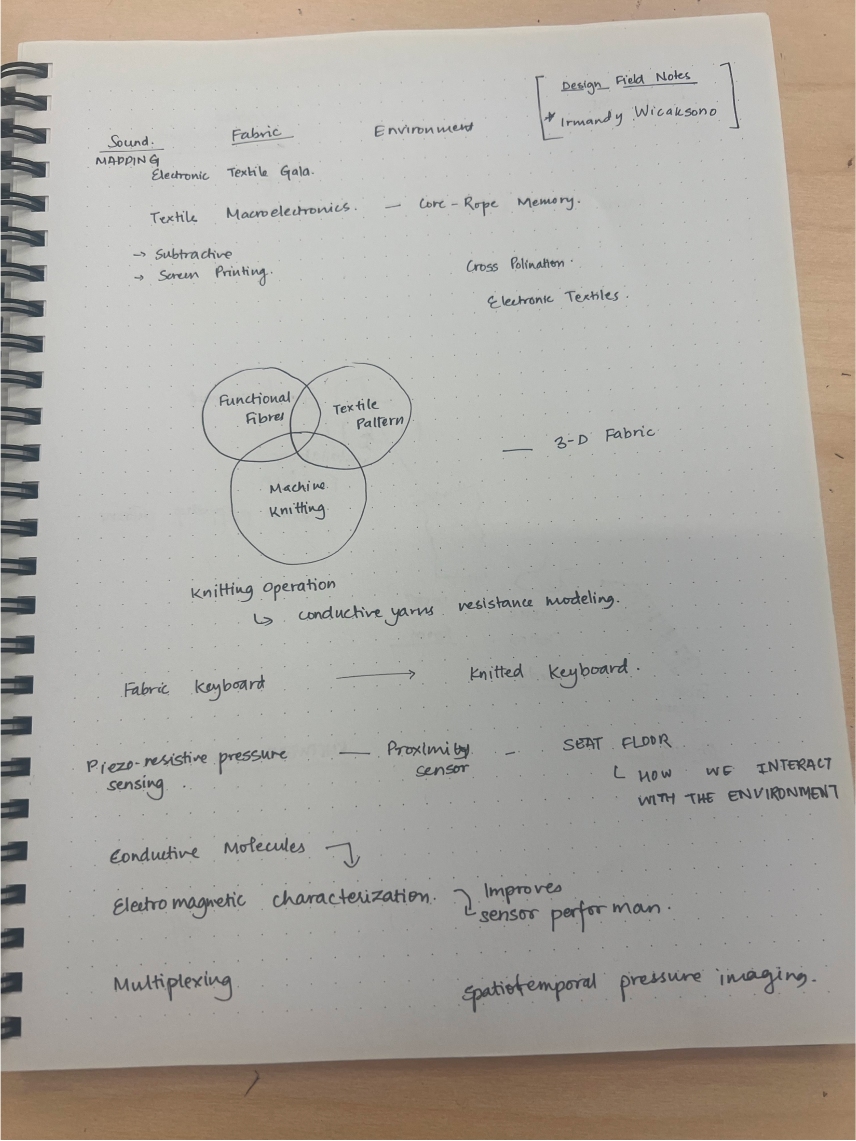 Design Field Notes
* Irmandy Wicaksono
Sound. Fabric Environment
MAPPING
Electronic Textile Gala.
Textile Macroelectronics. — Core-Rope Memory.
→ Subtractive
→ Screen Printing.
Cross Polination.
Electronic Textiles.
Functional Fibres
Textile Pattern
Machine Knitting
— 3-D Fabric
Knitting Operation
↳ conductive yarns resistance modeling.
Fabric Keyboard → Knitted Keyboard.
Piezo-resistive pressure sensing. — Proximity sensor - SEAT FLOOR
HOW WE INTERACT
WITH THE ENVIRONMENT
Conductive Molecules
Electromagnetic characterization. Improves
sensor performan.
Multiplexing Spatiotemporal pressure imaging.